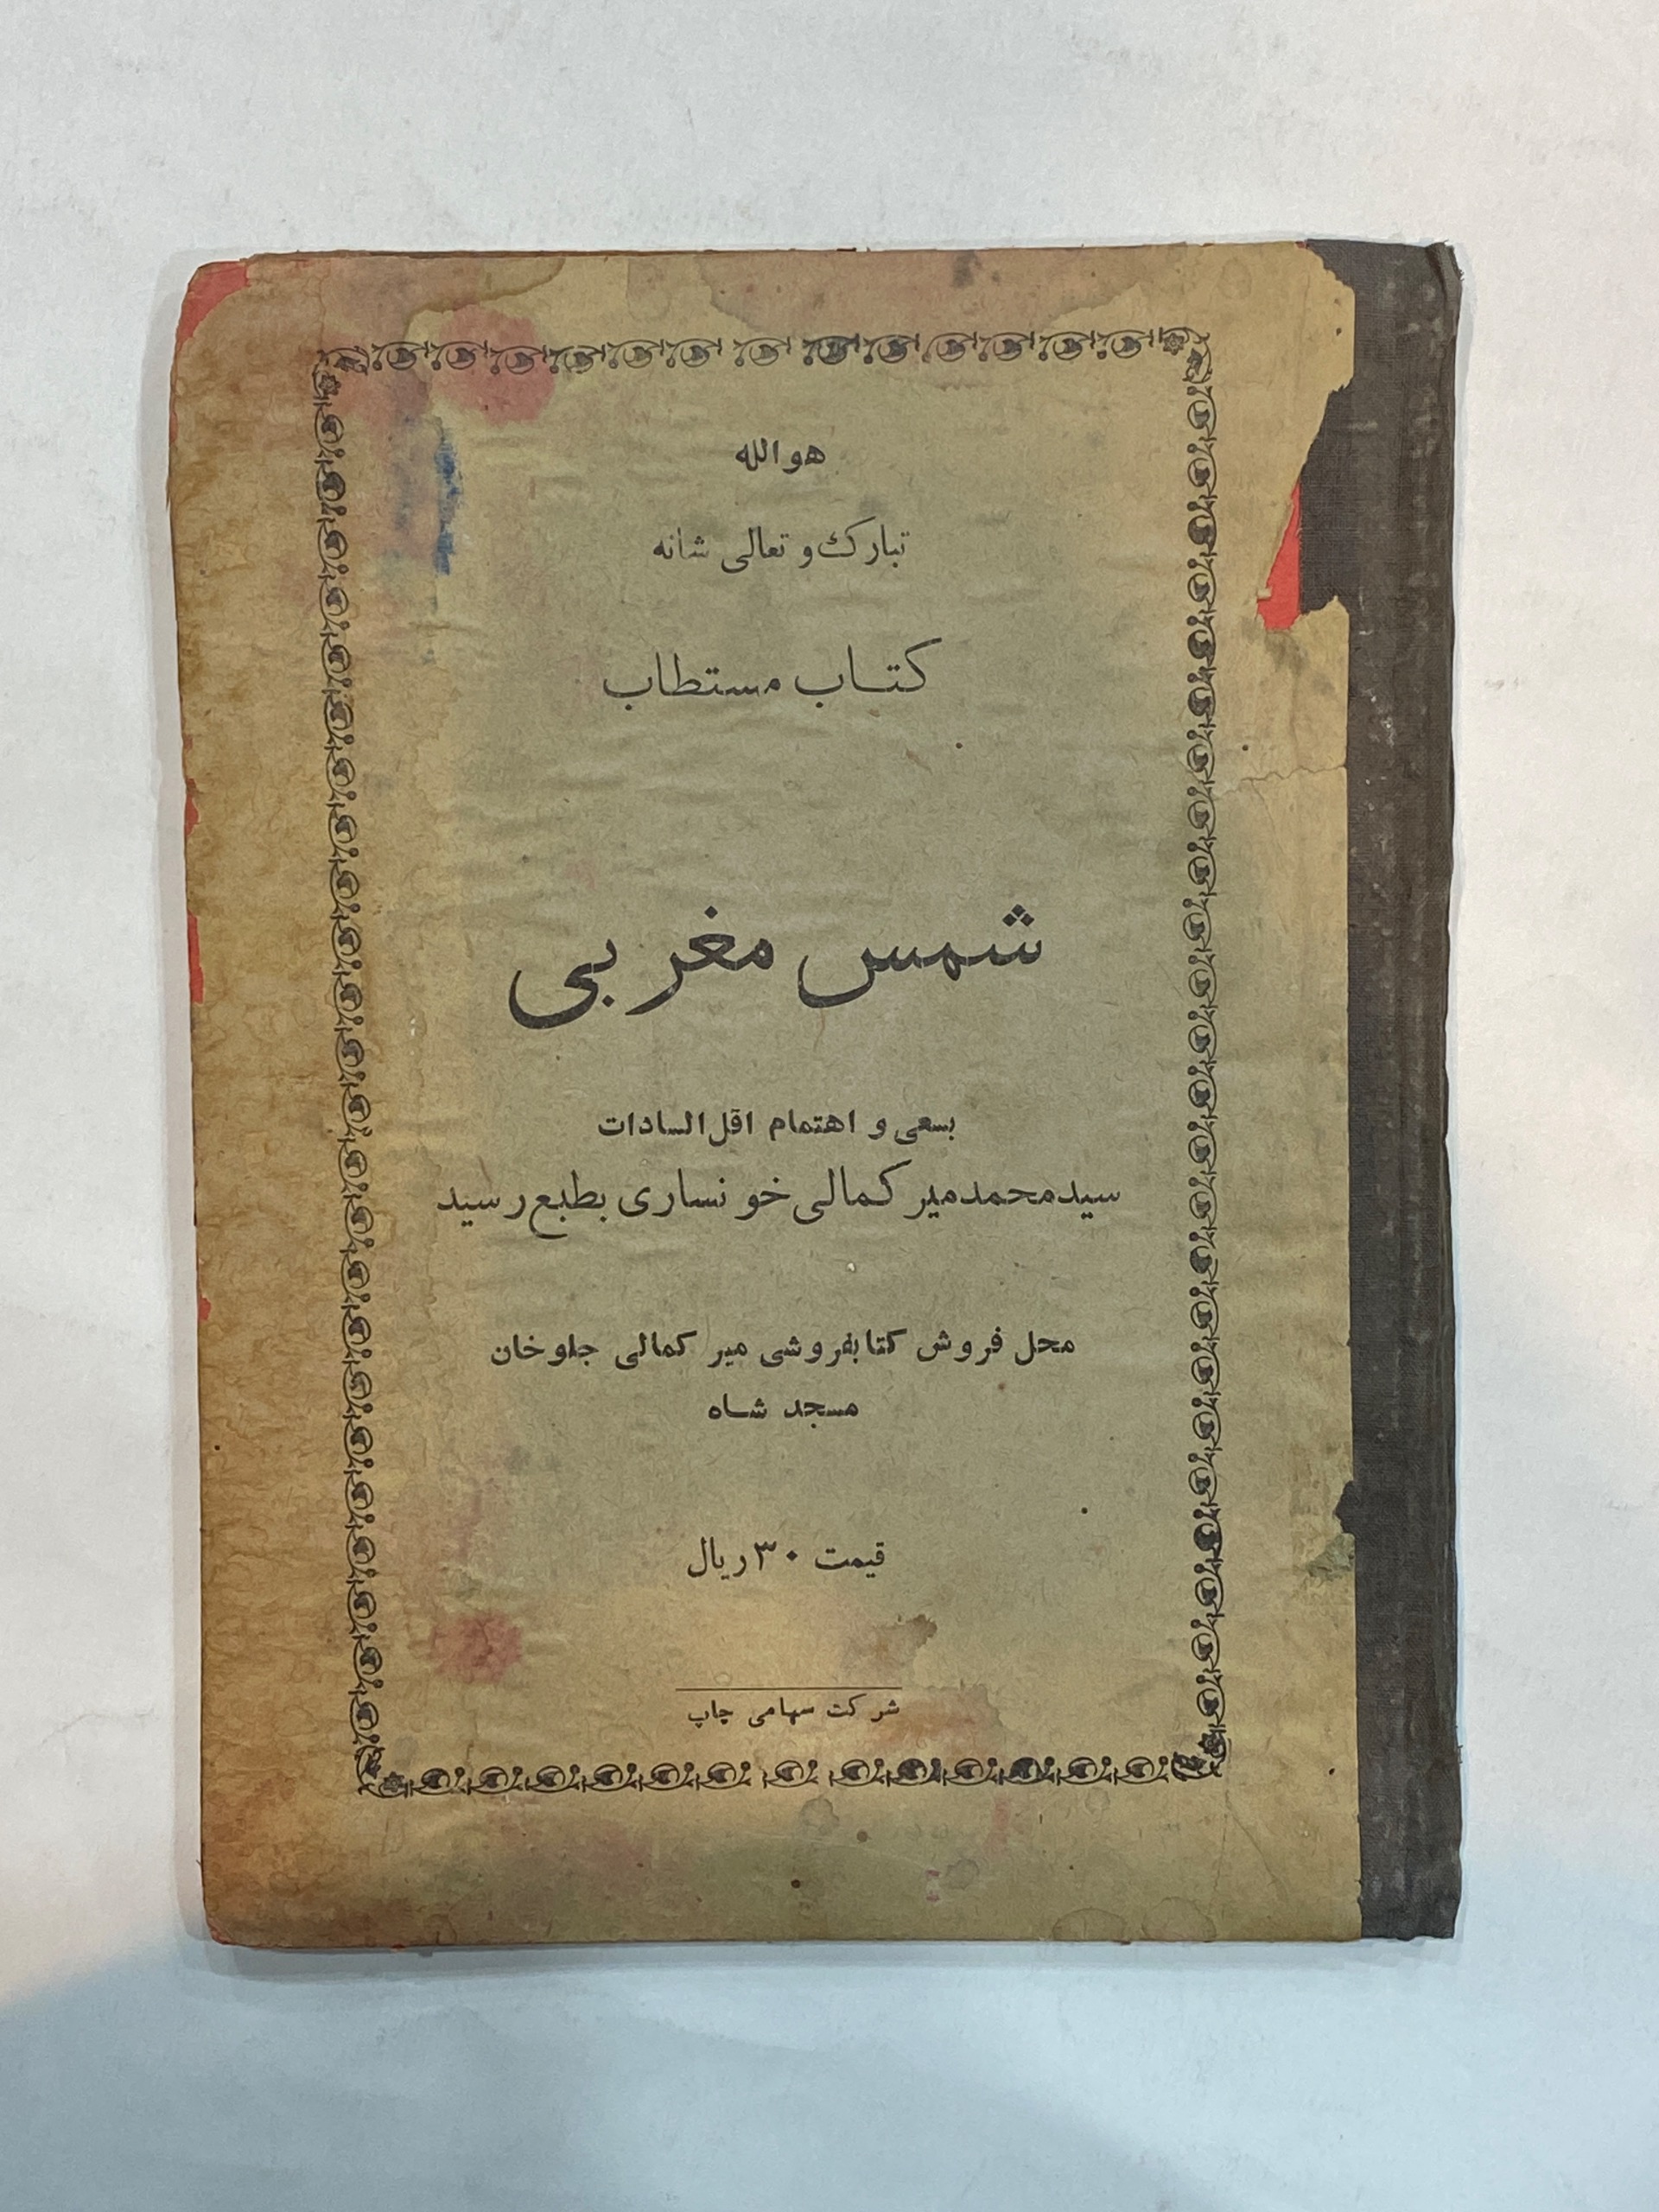 هوالله
تبارك و تعالی شانه
کتاب مستطاب
شمس مغربی
بسعی و اهتمام اقل السادات
سید محمد میر کمالی خونساری بطبع رسید
محل فروش کتابفروشی میر کمالی جلوخان
مسجد شاه
قیمت ۳۰ ریال
شرکت سهامی چاپ